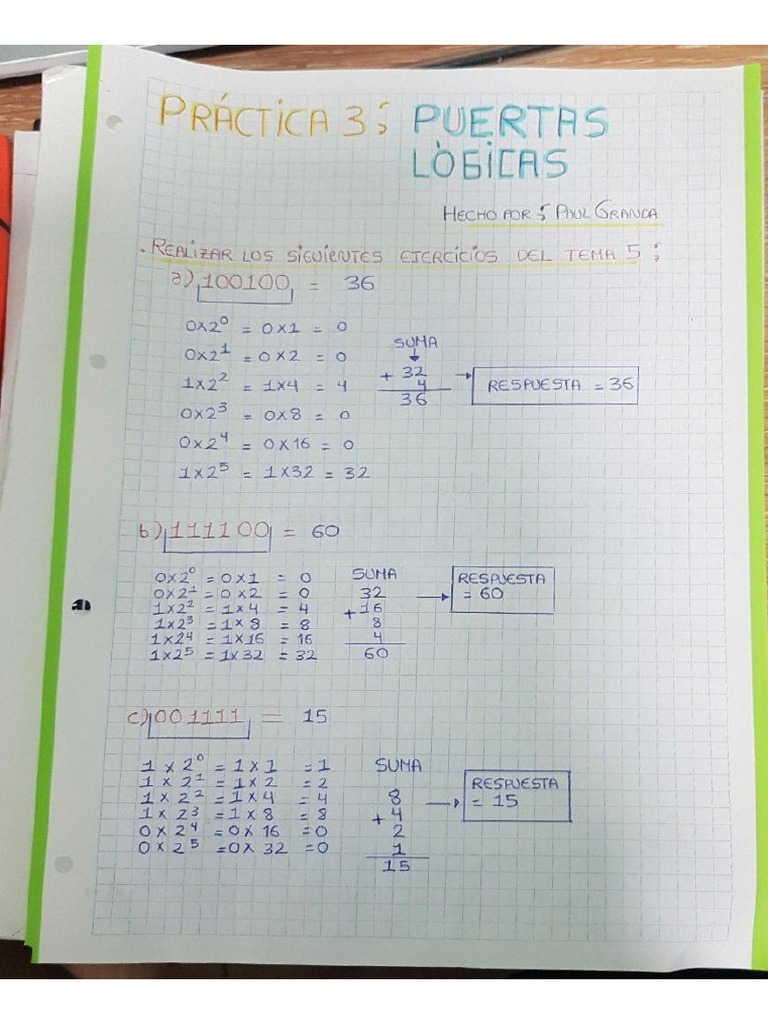 PRÁCTICA 3: PUERTAS
LÒGICAS
HECHO POR: PAUL GRANDA
. REALIZAR LOS SIGUIENTES EJERCICIOS DEL TEMA 5:
a) 100100 = 36
0x2⁰ = 0x1 = 0
0x2¹ = 0x2 = 0
1x2² = 1x4 = 4
0x2³ = 0x8 = 0
0x2⁴ = 0x16 = 0
1x2⁵ = 1x32 = 32
SUMA
+ 32
4
36
RESPUESTA = 36
b) 111100 = 60
0x2⁰ = 0x1 = 0
0x2¹ = 0x2 = 0
1x2² = 1x4 = 4
1x2³ = 1x8 = 8
1x2⁴ = 1x16 = 16
1x2⁵ = 1x32 = 32
SUMA
32
+ 16
8
4
60
RESPUESTA
= 60
c) 001111 = 15
1 x 2⁰ = 1 x 1 = 1
1 x 2¹ = 1 x 2 = 2
1 x 2² = 1 x 4 = 4
1 x 2³ = 1 x 8 = 8
0 x 2⁴ = 0 x 16 = 0
0 x 2⁵ = 0 x 32 = 0
SUMA
8
+ 4
2
1
15
RESPUESTA
= 15